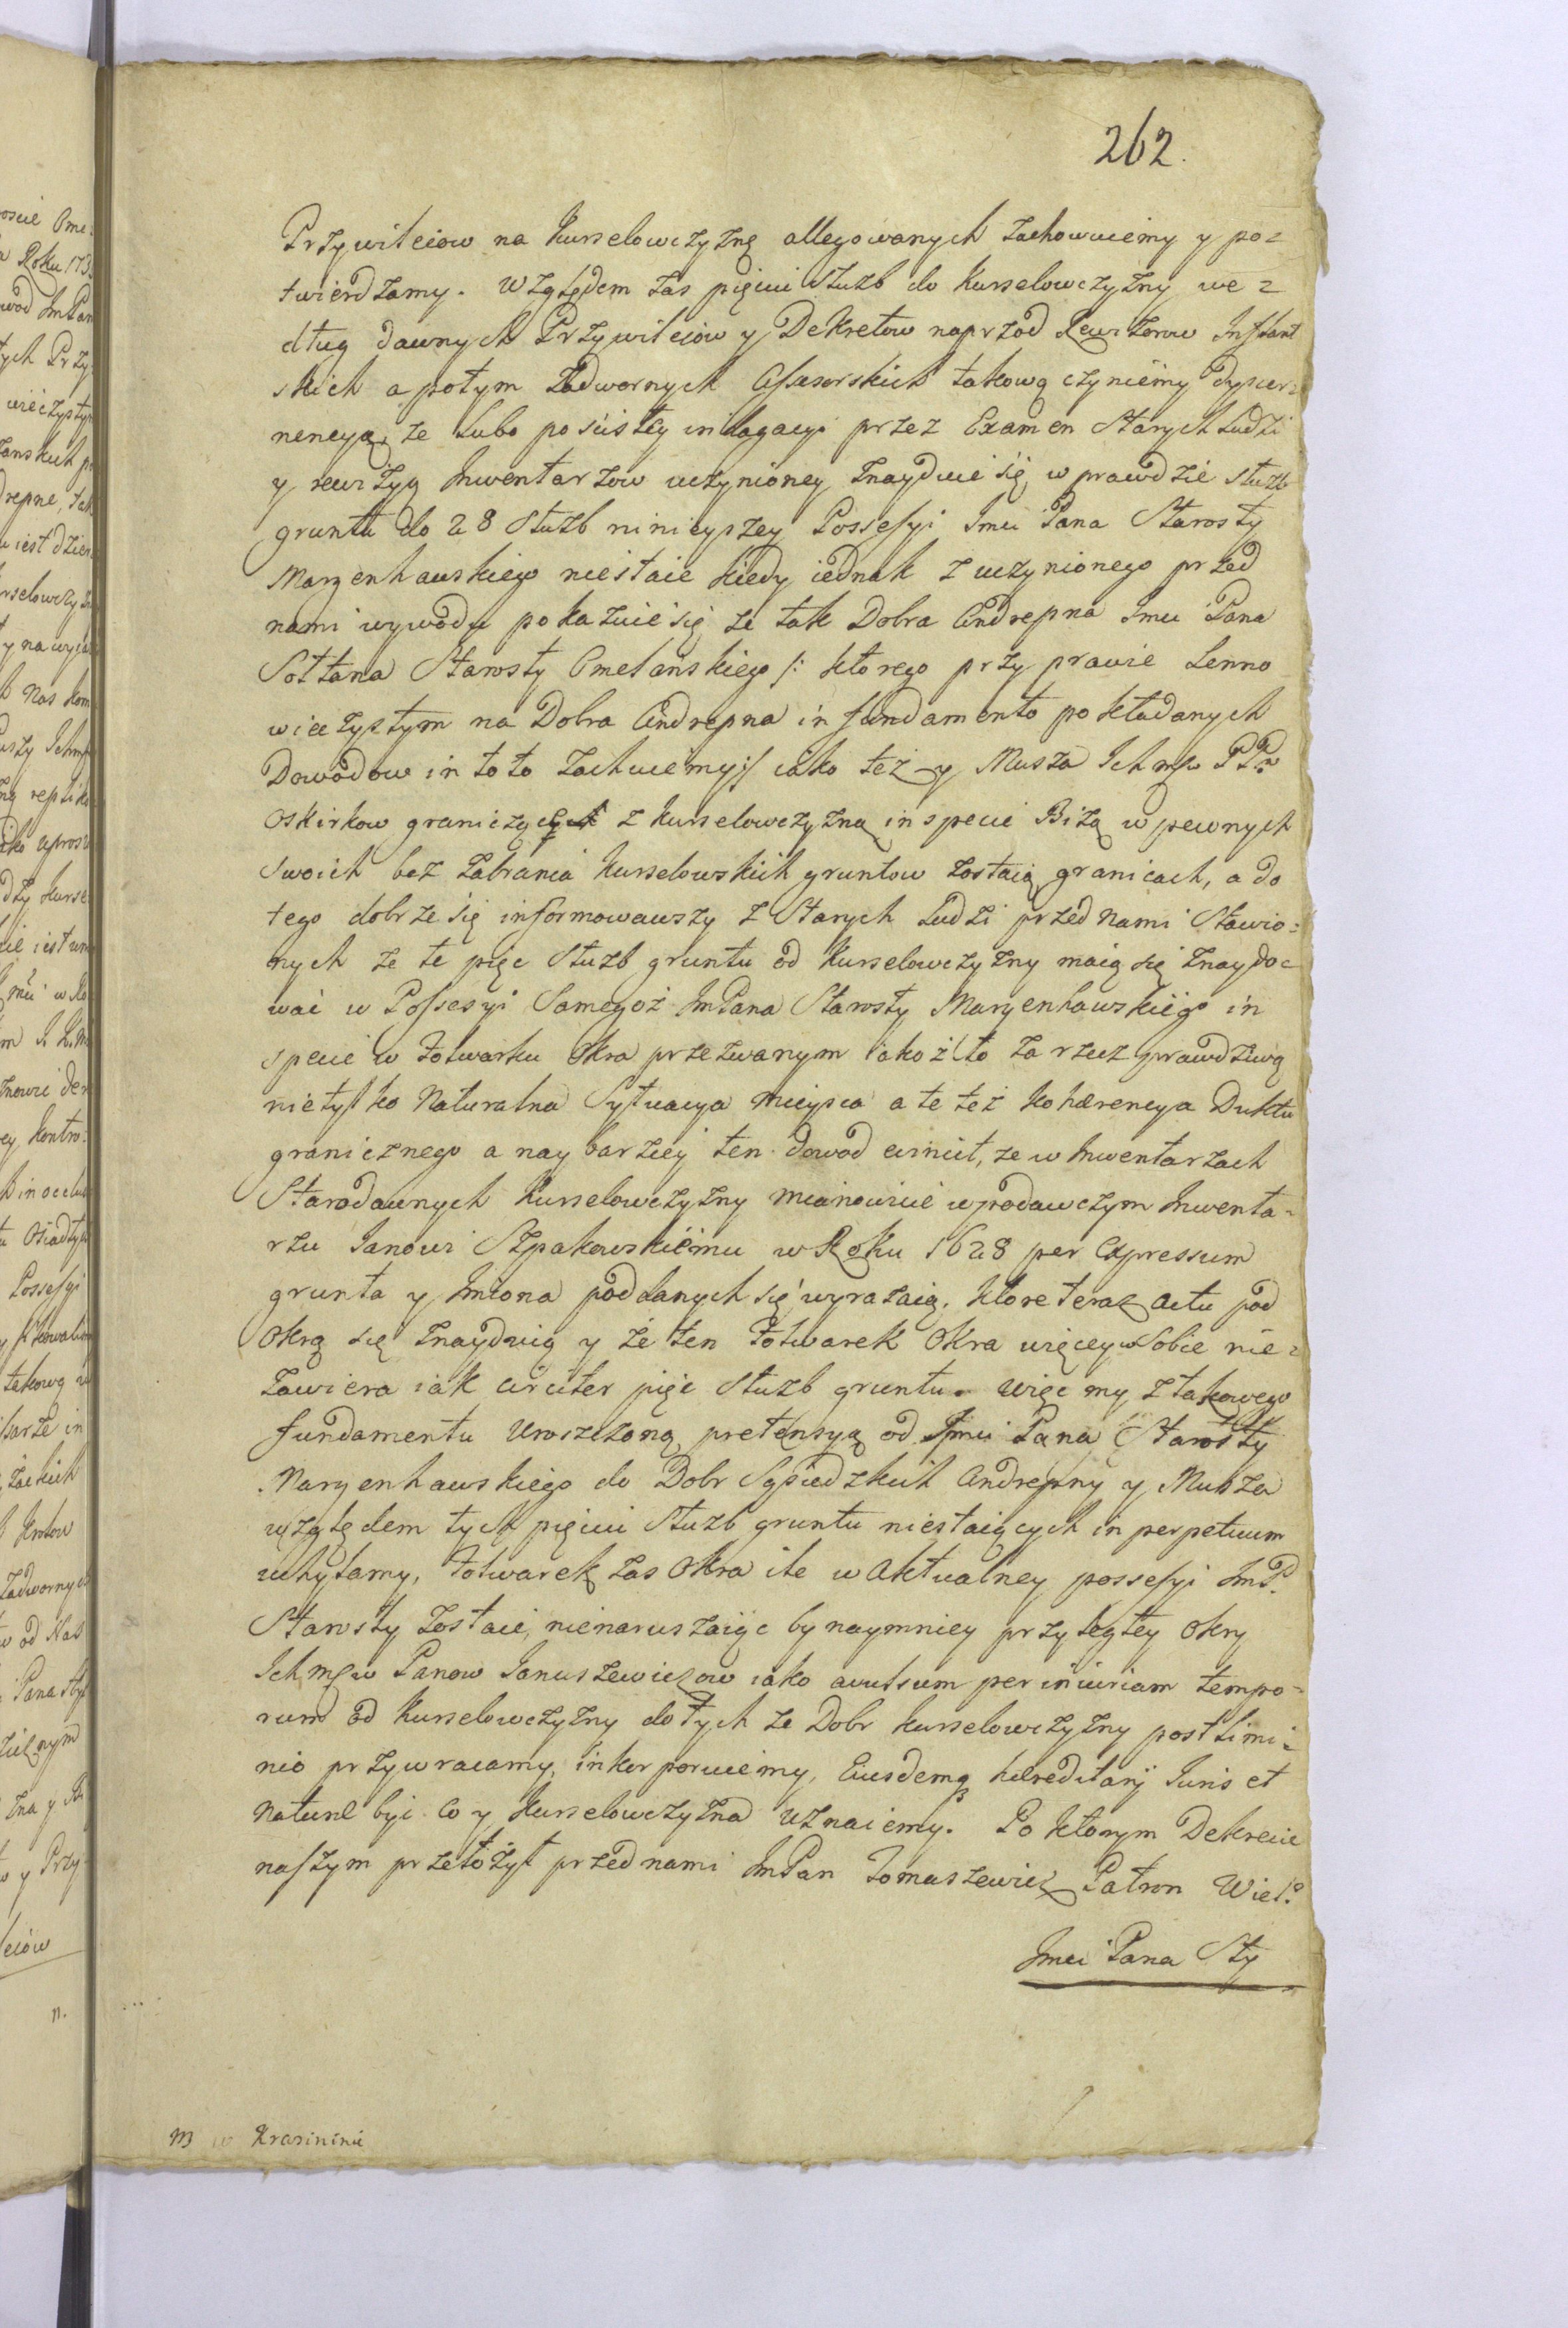 262.
Przywileiow na Kurselowczyznę allegowanych zachowuiemy y po=
twierdzamy. Względem zas pięciu służb do Kurselowczyzny we=
dług dawnych Przywileiow y Dekretow naprzod Rewizorow Inflant
skich a potym Zadwornych Assesorskich takową czyniemy dyscer=
nencyą, ze lubo po scisłey indagacyi przez Examen Starych ludzi
y rewizyą Inwentarzow uczynioney znayduie się w prawdzie służb
gruntu do 28 Służb ninieyszey Possessyi Jmci Pana Starosty
Maryenhauskiego niestaie kiedy iednak z uczynionego przed
nami wywodu pokazuie się ze tak Dobra Andrepna Jmci Pana
Sołtana Starosty Omelańskiego /: ktorego przy prawie Lenno
wieczystym na Dobra Andrepna in fundamento pokładanych
Dowodow in toto zachuiemy:/ iako też y Musza Ichmsc PPw
Oskirkow graniczących z Kurselowczyzną in specie Bizą w pewnych
swoich bez zabrania Kurselowskich gruntow zostaią granicach, a do
tego dobrze się informowawszy z Starych Ludzi przed nami Stawio=
nych ze te pięc Służb gruntu od Kurselowczyzny maią się znaydo=
wać w Possesyi Samegoż JmPana Starosty Maryenhawskiego in
specie w Folwarku Okra przezwanym iakoż to za rzecz prawdziwą
nietylko Naturalna Sytuacya mieysca ate też kohærencya Duktu
granicznego a naybarzieÿ ten dowod ewincit, ze w Inwentarzach
Starodawnych Kurselowczyzny mianowicie w prodawczym Inwenta=
rzu Janowi Szpakowskiemu w Roku 1628 per Expressum
grunta y Imiona poddanych się wyrazaią. ktore teraz actu pod
Okrą się znayduią y że ten Folwarek Okra więcey w Sobie nie=
zawiera iak circiter pięc Służb gruntu. Więc my z takowego
fundamentu Uroszczoną pretęnsyą od Jmci Pana Starosty
Maryenhawskiego do Dobr Sąsiedzkich Andrepny y Musza
względem tych pięciu Służb gruntu niestaiących in perpetuum
uchylamy, Folwarek zas Okra ile w Aktualney possessyi JmP.
Starosty zostaie, nienaruszaiąc by naymniey przyległey Okry
Ichmsw Panow Januszewiczow iako avulsum per iniuriam tempo=
rum od Kurselowczyzny do tych ze Dobr Kurselowczyzny postlimi=
nio przywracamy, inkorporuiemy, Eiusdemq hæreditarÿ Iuris et
Naturæ byi Co y Kurselowczyzna uznaiemy. Po ktorym Dekrecie
naszym przełożył przed nami JmPan Tomaszewicz Patron Wiel.
Jmci Pana Sty
w Krasininie